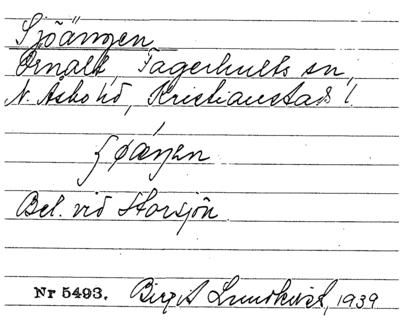 Sjöängen
Örnalt, Fagerhults sn,
N. Åsbo hd, Kristianstads l.
ʃøæŋen
Bel. vid Storsjön.
Nr 5493. Birgit Lundkvist, 1939